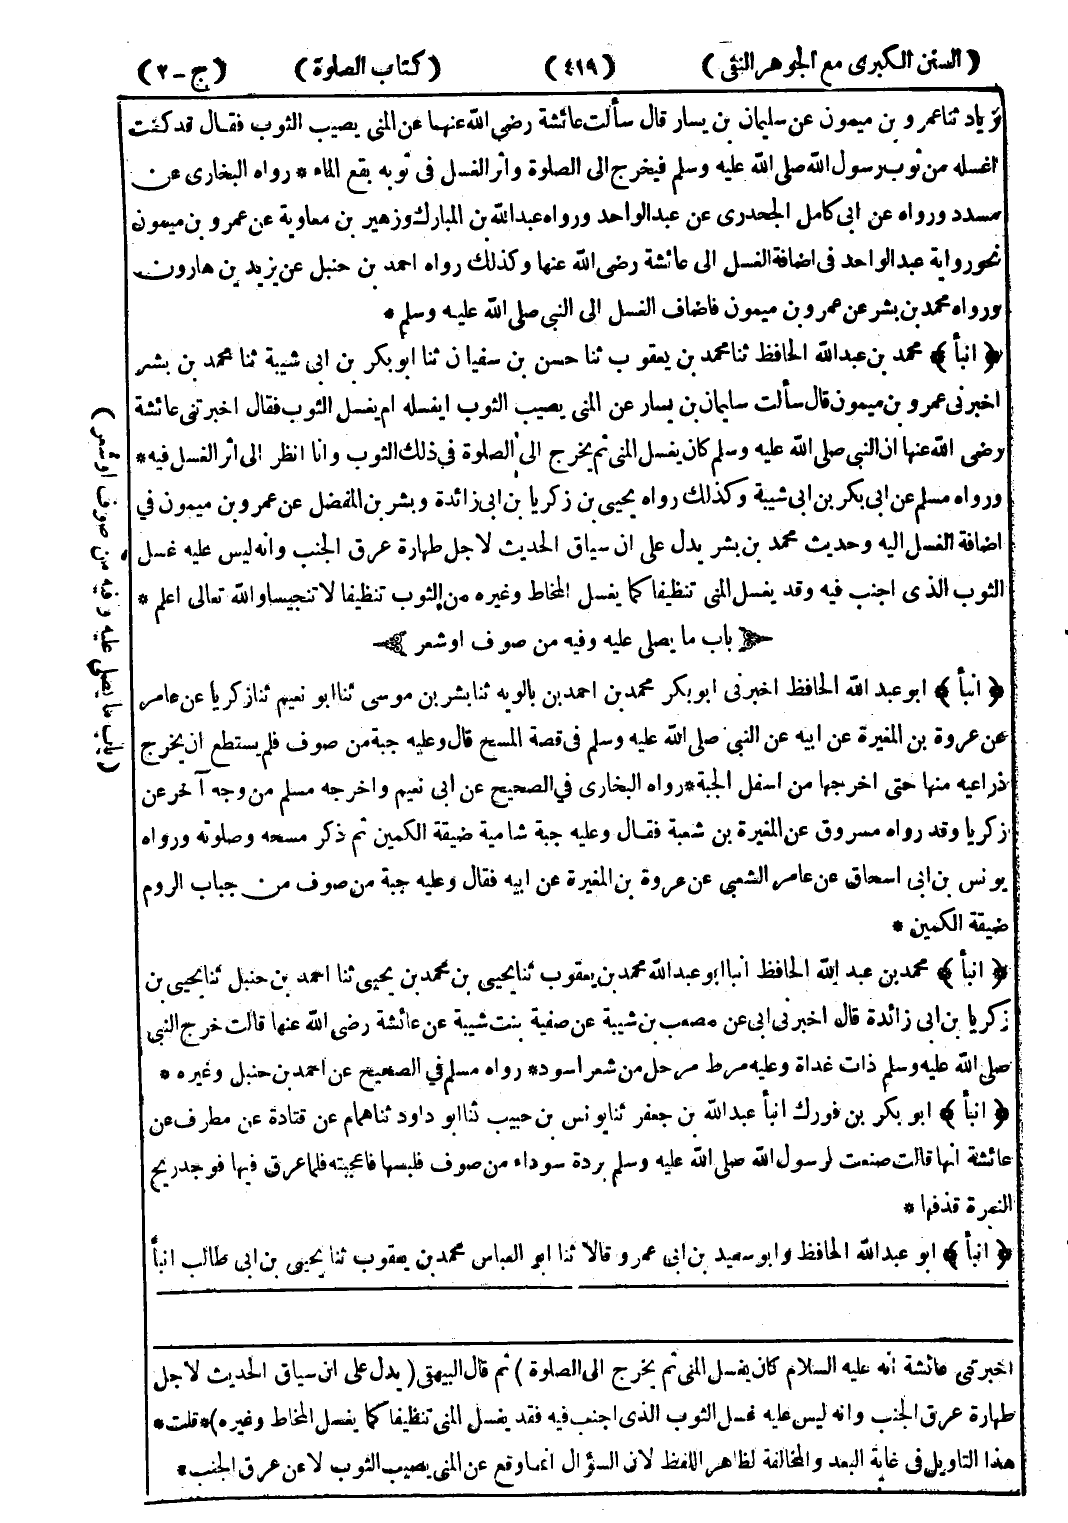 (السنن الكبرى مع الجوهر النقى) (٤١٩) (كتاب الصلوة) (ج-٢)
زياد ثنا عمرو بن ميمون عن سليمان بن يسار قال سألت عائشة رضى الله عنها عن المنى يصيب الثوب فقال قد كنت
اغسله من ثوب رسول الله صلى الله عليه وسلم فيخرج الى الصلوة واثر الغسل فى ثوبه بقع الماء * رواه البخارى عن
مسدد ورواه عن ابى كامل الجحدرى عن عبد الواحد ورواه عبد الله بن المبارك وزهير بن معاوية عن عمرو بن ميمون
نحو رواية عبد الواحد فى اضافة الغسل الى عائشة رضى الله عنها وكذلك رواه احمد بن حنبل عن يزيد بن هارون
ورواه محمد بن بشر عن عمرو بن ميمون فاضاف الغسل الى النبى صلى الله عليه وسلم *
﴿ انبأ ﴾ محمد بن عبد الله الحافظ ثنا محمد بن يعقوب ثنا حسن بن سفيان ثنا ابو بكر بن ابى شيبة ثنا محمد بن بشر
اخبرنى عمرو بن ميمون قال سألت سليمان بن يسار عن المنى يصيب الثوب ايغسله ام يغسل الثوب فقال اخبرتنى عائشة
رضى الله عنها ان النبى صلى الله عليه وسلم كان يغسل المنى ثم يخرج الى الصلوة في ذلك الثوب وانا انظر الى أثر الغسل فيه *
ورواه مسلم عن ابى بكر بن ابى شيبة وكذلك رواه يحيى بن زكريا بن ابى زائدة وبشر بن المفضل عن عمرو بن ميمون في
اضافة الغسل اليه وحديث محمد بن بشر يدل على ان سياق الحديث لاجل طهارة عرق الجنب وانه ليس عليه غسل
الثوب الذى اجنب فيه وقد يغسل المنى تنظيفا كما يغسل المخاط وغيره من الثوب تنظيفا لا تنجيسا والله تعالى اعلم *
باب ما يصلى عليه وفيه من صوف او شعر
﴿ انبأ ﴾ ابو عبد الله الحافظ اخبرنى ابو بكر محمد بن احمد بن بالويه ثنا بشر بن موسى ثنا ابو نعيم ثنا زكريا عن عامر
عن عروة بن المغيرة عن ابيه عن النبى صلى الله عليه وسلم فى قصة المسح قال وعليه جبة من صوف فلم يستطع ان يخرج
ذراعيه منها حتى اخرجها من اسفل الجبة * رواه البخارى في الصحيح عن ابى نعيم واخرجه مسلم من وجه آخر عن
زكريا وقد رواه مسروق عن المغيرة بن شعبة فقال وعليه جبة شامية ضيقة الكمين ثم ذكر مسحه وصلوته ورواه
يونس بن ابى اسحاق عن عامر الشعبى عن عروة بن المغيرة عن ابيه فقال وعليه جبة من صوف من جباب الروم
ضيقة الكمين *
﴿ انبأ ﴾ محمد بن عبد الله الحافظ انبأ ابو عبد الله محمد بن يعقوب ثنا يحيى بن محمد بن يحيى ثنا احمد بن حنبل ثنا يحيى بن
زكريا بن ابى زائدة قال اخبرنى ابى عن مصعب بن شيبة عن صفية بنت شيبة عن عائشة رضى الله عنها قالت خرج النبى
صلى الله عليه وسلم ذات غداة وعليه مرط مرحل من شعر اسود * رواه مسلم في الصحيح عن احمد بن حنبل وغيره *
﴿ انبأ ﴾ ابو بكر بن فورك انبأ عبد الله بن جعفر ثنا يونس بن حبيب ثنا ابو داود ثنا همام عن قتادة عن مطرف عن
عائشة انها قالت صنعت لرسول الله صلى الله عليه وسلم بردة سوداء من صوف فلبسها فاعجبته فلما عرق فيها فوجد ريح
النمرة قذفها *
﴿ انبأ ﴾ ابو عبد الله الحافظ وابو سعيد بن ابى عمرو قالا ثنا ابو العباس محمد بن يعقوب ثنا يحيى بن ابى طالب انبأ
اخبرتنى عائشة انه عليه السلام كان يغسل المنى ثم يخرج الى الصلوة) ثم قال البيهقى (يدل على ان سياق الحديث لاجل
طهارة عرق الجنب وانه ليس عليه غسل الثوب الذى اجنب فيه فقد يغسل المنى تنظيفا كما يغسل المخاط وغيره) * قلت *
هذا التاويل فى غاية البعد والمخالفة لظاهر اللفظ لان السؤال انما وقع عن المنى يصيب الثوب لا عن عرق الجنب *
(باب ما يصلى عليه وفيه من صوف او شعر)